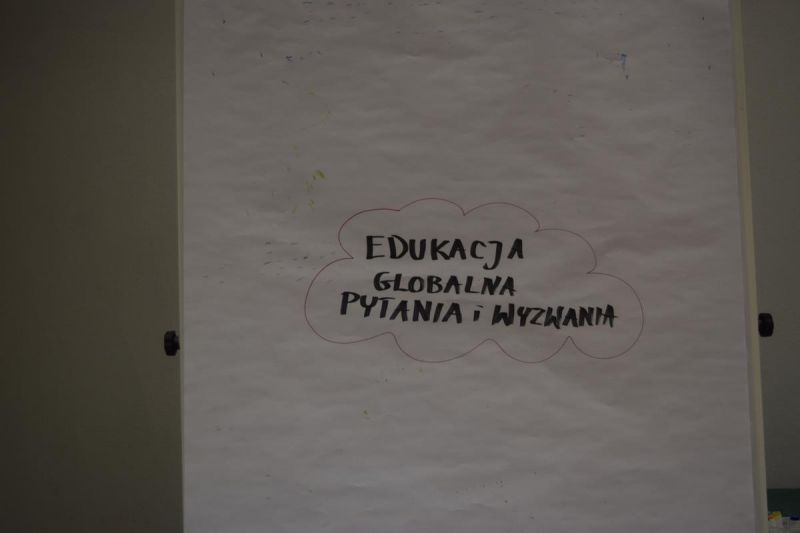 EDUKACJA
GLOBALNA
PYTANIA i WYZWANIA